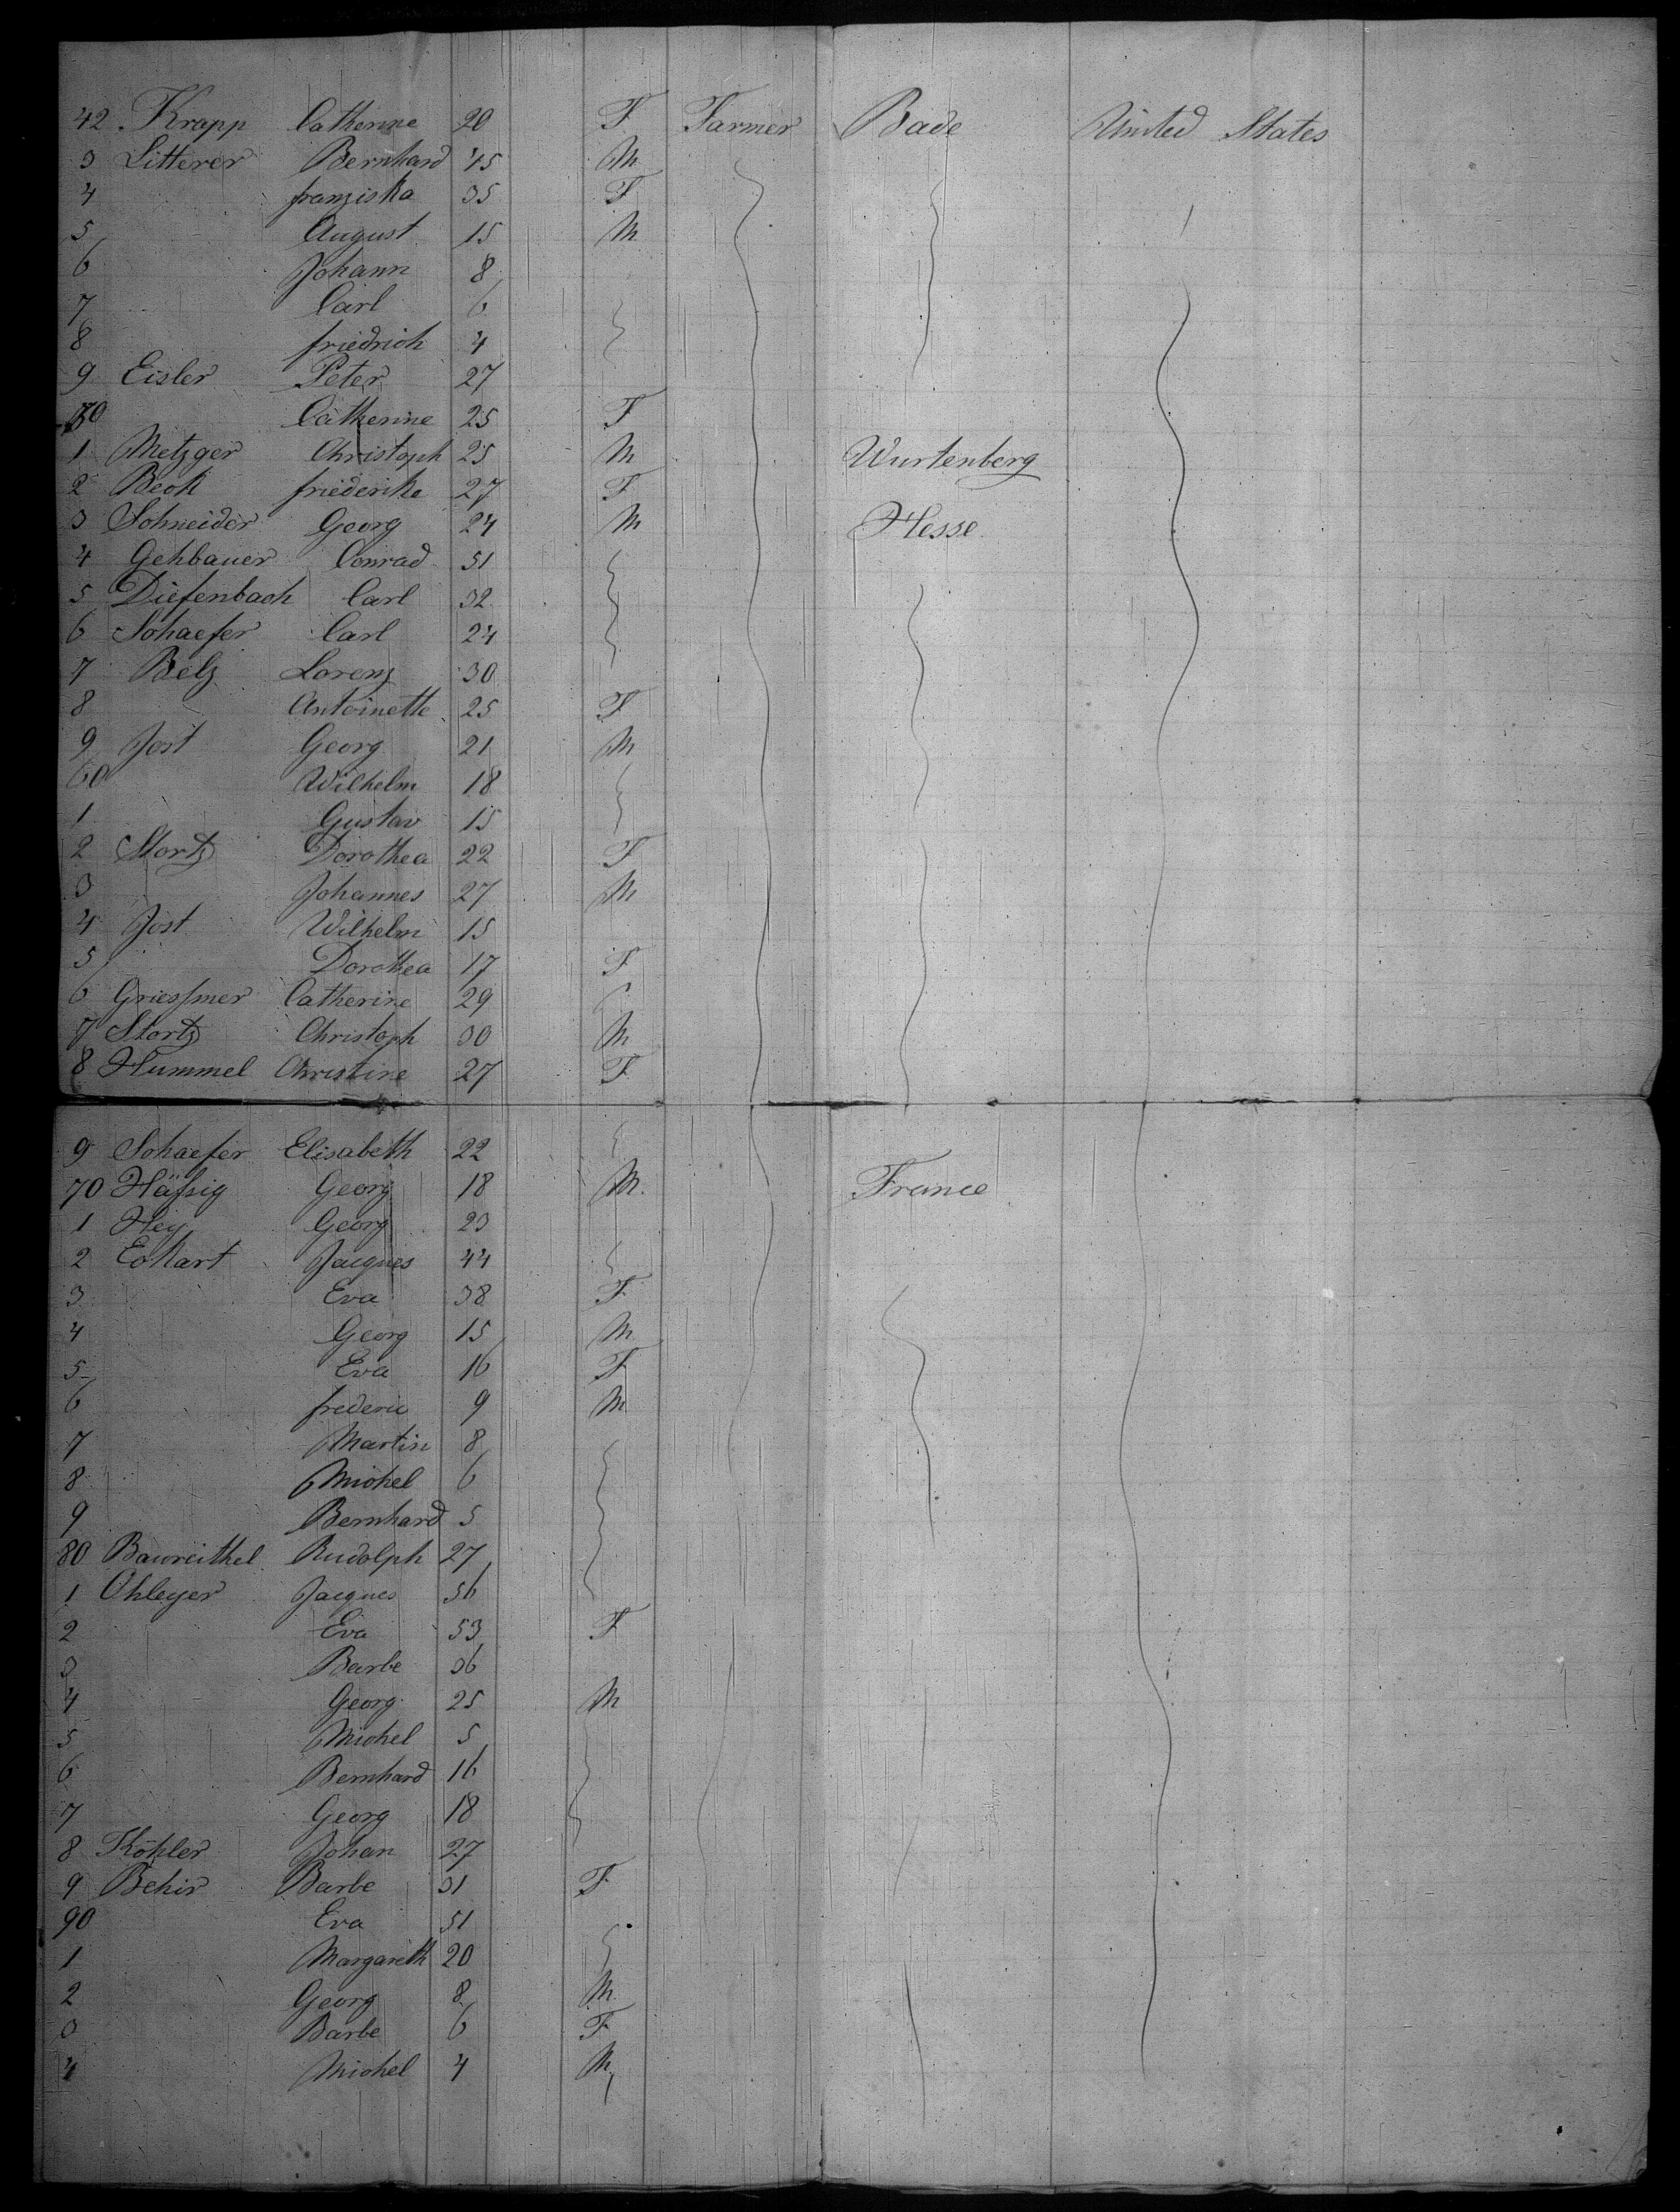 42 Krapp Catherine 20 F Farmer Bade United States
3 Litterer Bernhard 45 M
4 franziska 35 F
5 August 15 M
6 Johann 8
7 Carl 6
8 friedrich 4
9 Eisler Peter 27
50 Catherine 25 F
1 Metzger Christoph 25 M Wurtenberg
2 Beck friederike 27 F
3 Schneider Georg 24 M Hesse
4 Gehbauer Conrad 51
5 Diefenbach Carl 32
6 Schaefer Carl 24
7 Belz Lorenz 30
8 Antoinette 25 F
9 Jost Georg 21 M
60 Wilhelm 18
1 Gustav 15
2 Stortz Dorothea 22 F
3 Johannes 27 M
4 Jost Wilhelm 15
5 Dorothea 17 F
6 Griessmer Catherine 29
7 Stortz Christoph 30 M
8 Hummel Christine 27 F
9 Schaefer Elisabeth 22
70 Häfsig Georg 18 M. France
1 Hey Georg 23
2 Eckart Jacques 44
3 Eva 38 F
4 Georg 15 M
5 Eva 16 F
6 frederic 9 M
7 Martin 8
8 Michel 6
9 Bernhard 5
80 Baureithel Rudolph 27
1 Ohleyer Jacques 56
2 Eva 53 F
3 Barbe 36
4 Georg 25 M
5 Michel 5
6 Bernhard 16
7 Georg 18
8 Köhler Johan 27
9 Behir Barbe 31 F
90 Eva 51
1 Margareth 20
2 Georg 8 M
3 Barbe 6 F
4 Michel 4 M